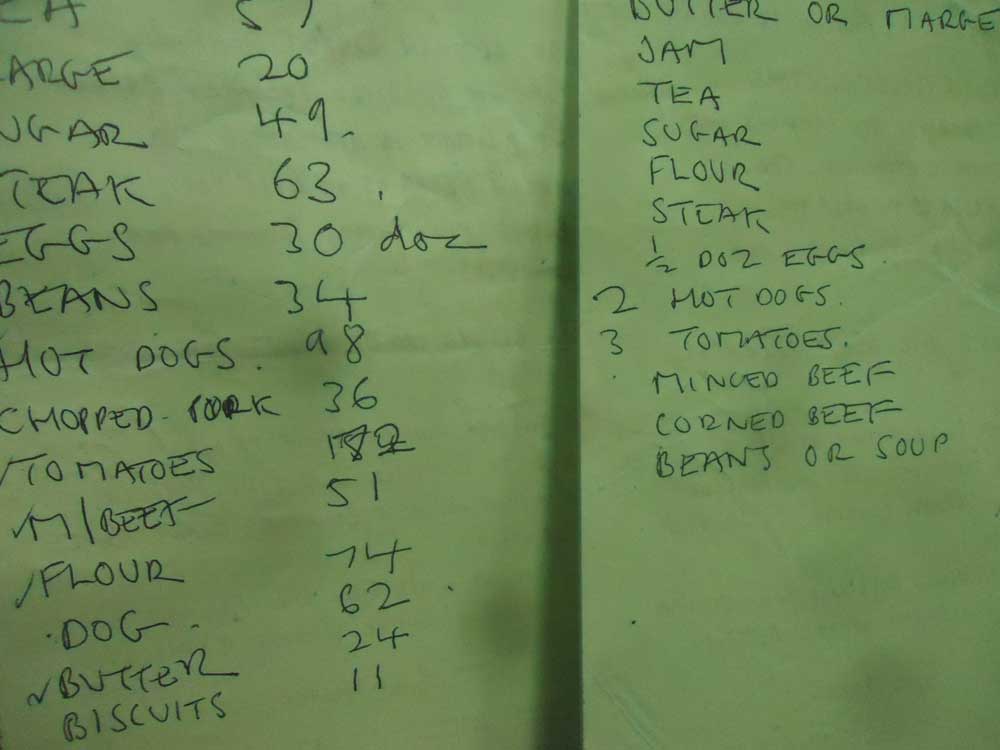 EA 57
ARGE 20
UGAR 49.
TEAK 63.
EGGS 30 doz
BEANS 34
HOT DOGS. 98
CHOPPED PORK 36
TOMATOES
M/BEEF 51
FLOUR 74
DOG 62
BUTTER 24
BISCUITS 11
BUTTER OR MARGE
JAM
TEA
SUGAR
FLOUR
STEAK
½ DOZ EGGS
2 HOT DOGS.
3 TOMATOES.
MINCED BEEF
CORNED BEEF
BEANS OR SOUP